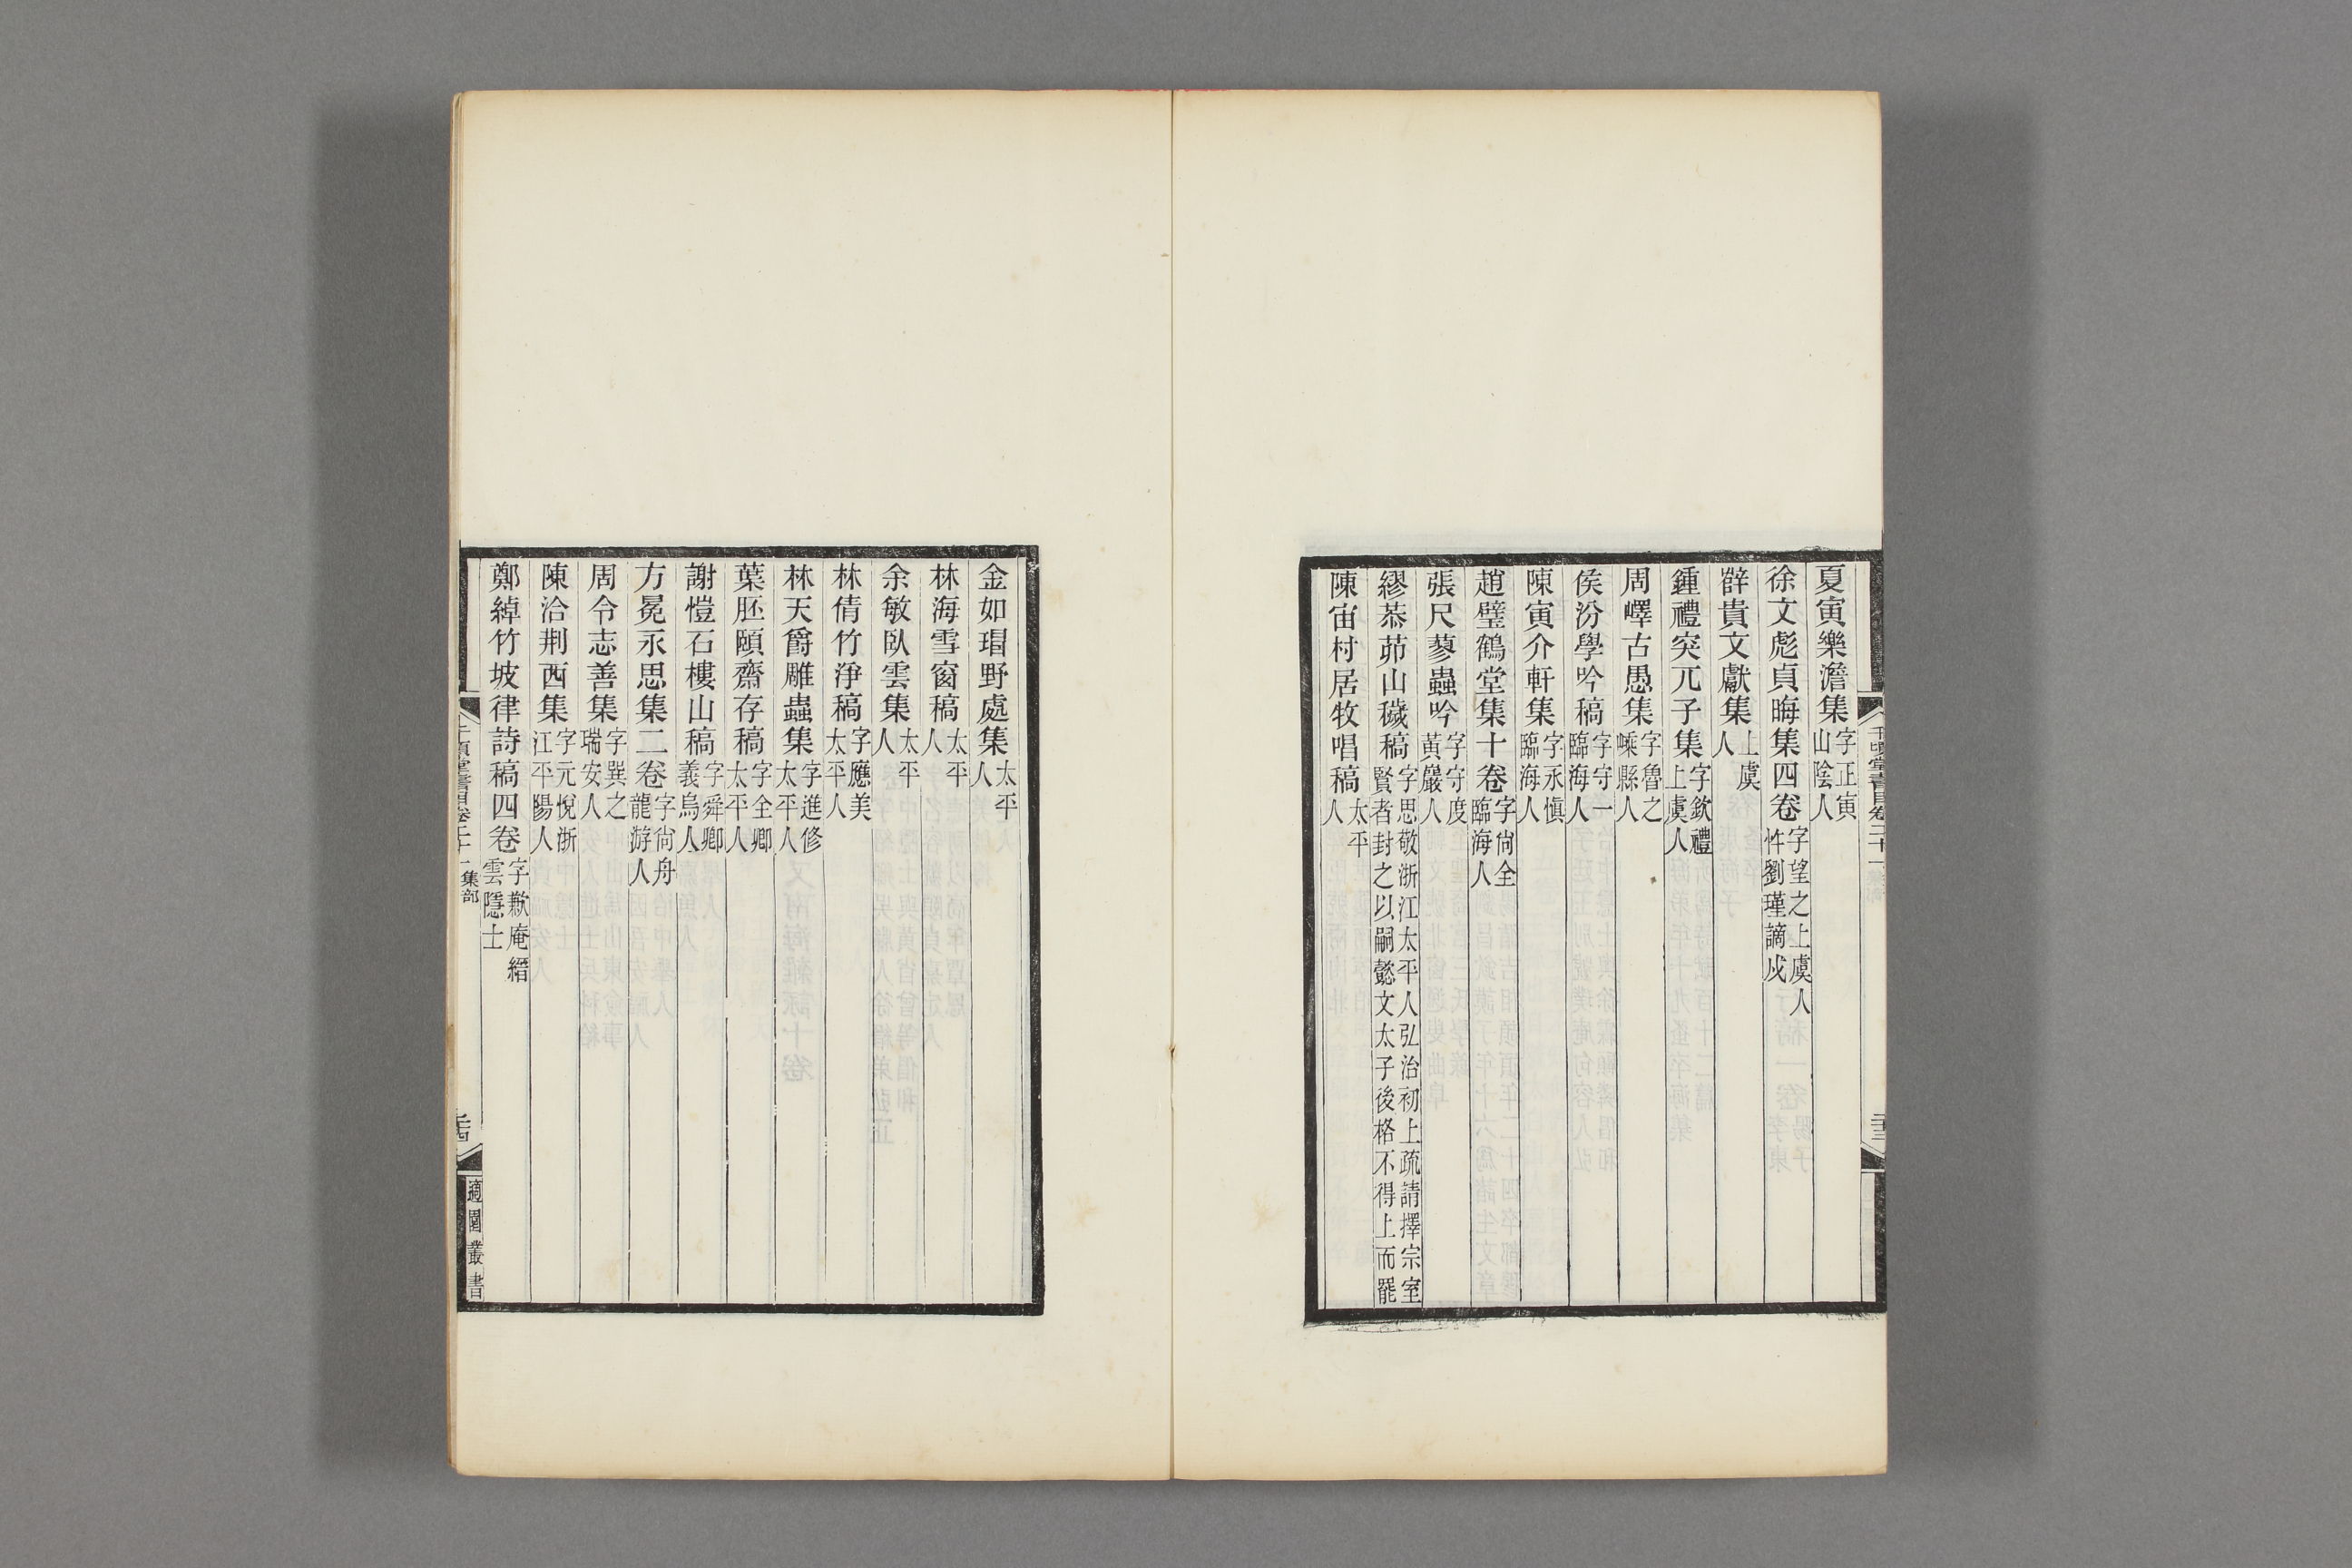 夏寅樂澹集字正寅山陰人
徐文彪貞晦集四卷字望之上虞人忤劉瑾謫戍
薛貴文獻集上虞人
鍾禮突兀子集字欽禮上虞人
周嶧古愚集字魯之嵊縣人
侯汾學吟稿字守一臨海人
陳寅介軒集字永愼臨海人
趙璧鶴堂集十卷字尙全臨海人
張尺蓼蟲吟字守度黃巖人
繆恭茆山穢稿字思敬浙江太平人弘治初上疏請擇宗室賢者封之以嗣懿文太子後格不得上而罷
陳宙村居牧唱稿太平人
千頃堂書目卷二十一 集部
二十三
金如琩野處集太平人
林海雪窗稿太平人
余敏臥雲集太平人
林倩竹淨稿字應美太平人
林天爵雕蟲集字進修太平人
葉胚頤齋存稿字全卿太平人
謝愷石樓山稿字舜卿義烏人
方冕永思集二卷字尙舟龍游人
周令志善集字巽之瑞安人
陳洽荆西集字元悅浙江平陽人
鄭綽竹坡律詩稿四卷字歉庵縉雲隱士
千頃堂書目卷二十一 集部
二十四
適園叢書